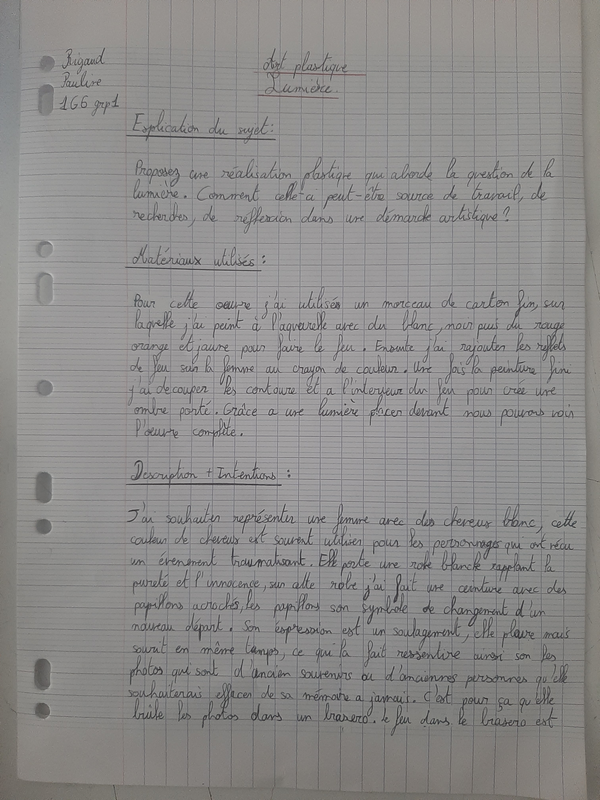 Rigaud
Pauline
1G6 grp1
Art plastique
Lumière
Explication du sujet:
Proposez une réalisation plastique qui aborde la question de la
lumière. Comment celle-ci peut-être source de travail, de
recherches, de refflexion dans une démarche artistique?
Matériaux utilisés:
Pour cette oeuvre j'ai utilisés un morceau de carton fin, sur
laquelle j'ai peint à l'aquarelle avec du blanc, noir puis du rouge
orange et jaune pour faire le feu. Ensuite j'ai rajouter les reflets
de feu sur la femme au crayon de couleur. Une fois la peinture fini
j'ai découper les contoure et a l'interieur du feu pour crée une
ombre porté. Grâce a une lumière placer devant nous pouvons voir
l'oeuvre complète.
Description + Intentions:
J'ai souhaiter représenter une femme avec des cheveux blanc, cette
couleur de cheveux est souvent utiliser pour les personnages qui ont vécu
un évènement traumatisant. Elle porte une robe blanche rapplant la
pureté et l'innocence, sur cette robe j'ai fait une ceinture avec des
papillons acrochés, les papillons son symbole de changement d'un
nouveau départ. Son expression est un soulagement, elle pleure mais
sourit en même temps, ce qui la fait ressentire ainsi son les
photos qui sont d'ancien souvenirs ou d'anciennes personnes qu'elle
souhaiterais effacer de sa mémoire a jamais. C'est pour ça qu'elle
brûle les photos dans un brasero. Le feu dans le brasero est